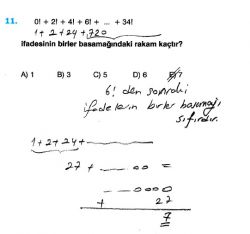 11. 0! + 2! + 4! + 6! + ... + 34!
1 + 2 + 24 + 720
ifadesinin birler basamağındaki rakam kaçtır?
A) 1 B) 3 C) 5 D) 6 E) 7
6! den sonraki
ifadelerin birler basamağı
sıfırdır.
1 + 2 + 24 +
27 + 00 =
0000
+ 27
7